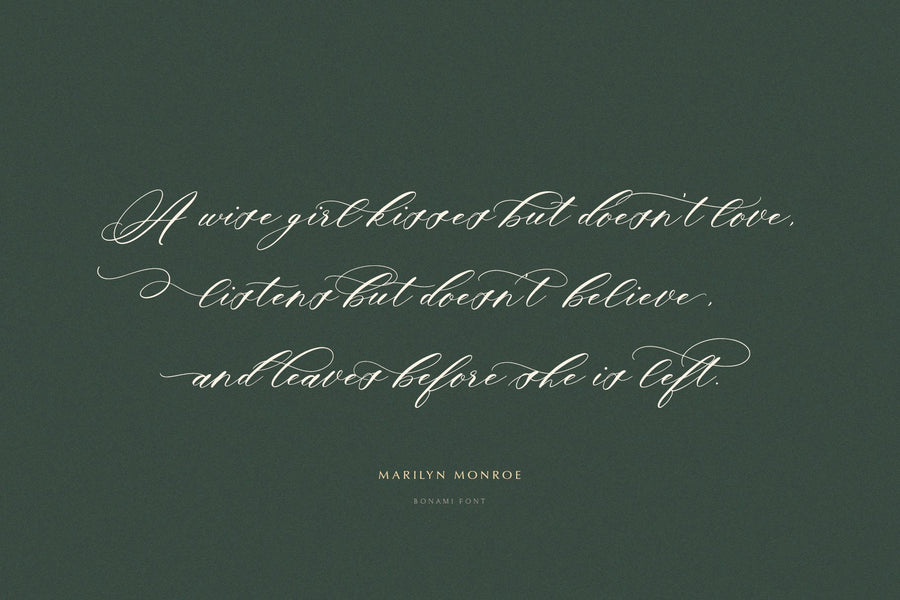 A wise girl kisses but doesn't love,
listens but doesn't believe,
and leaves before she is left.
MARILYN MONROE
BONAMI FONT